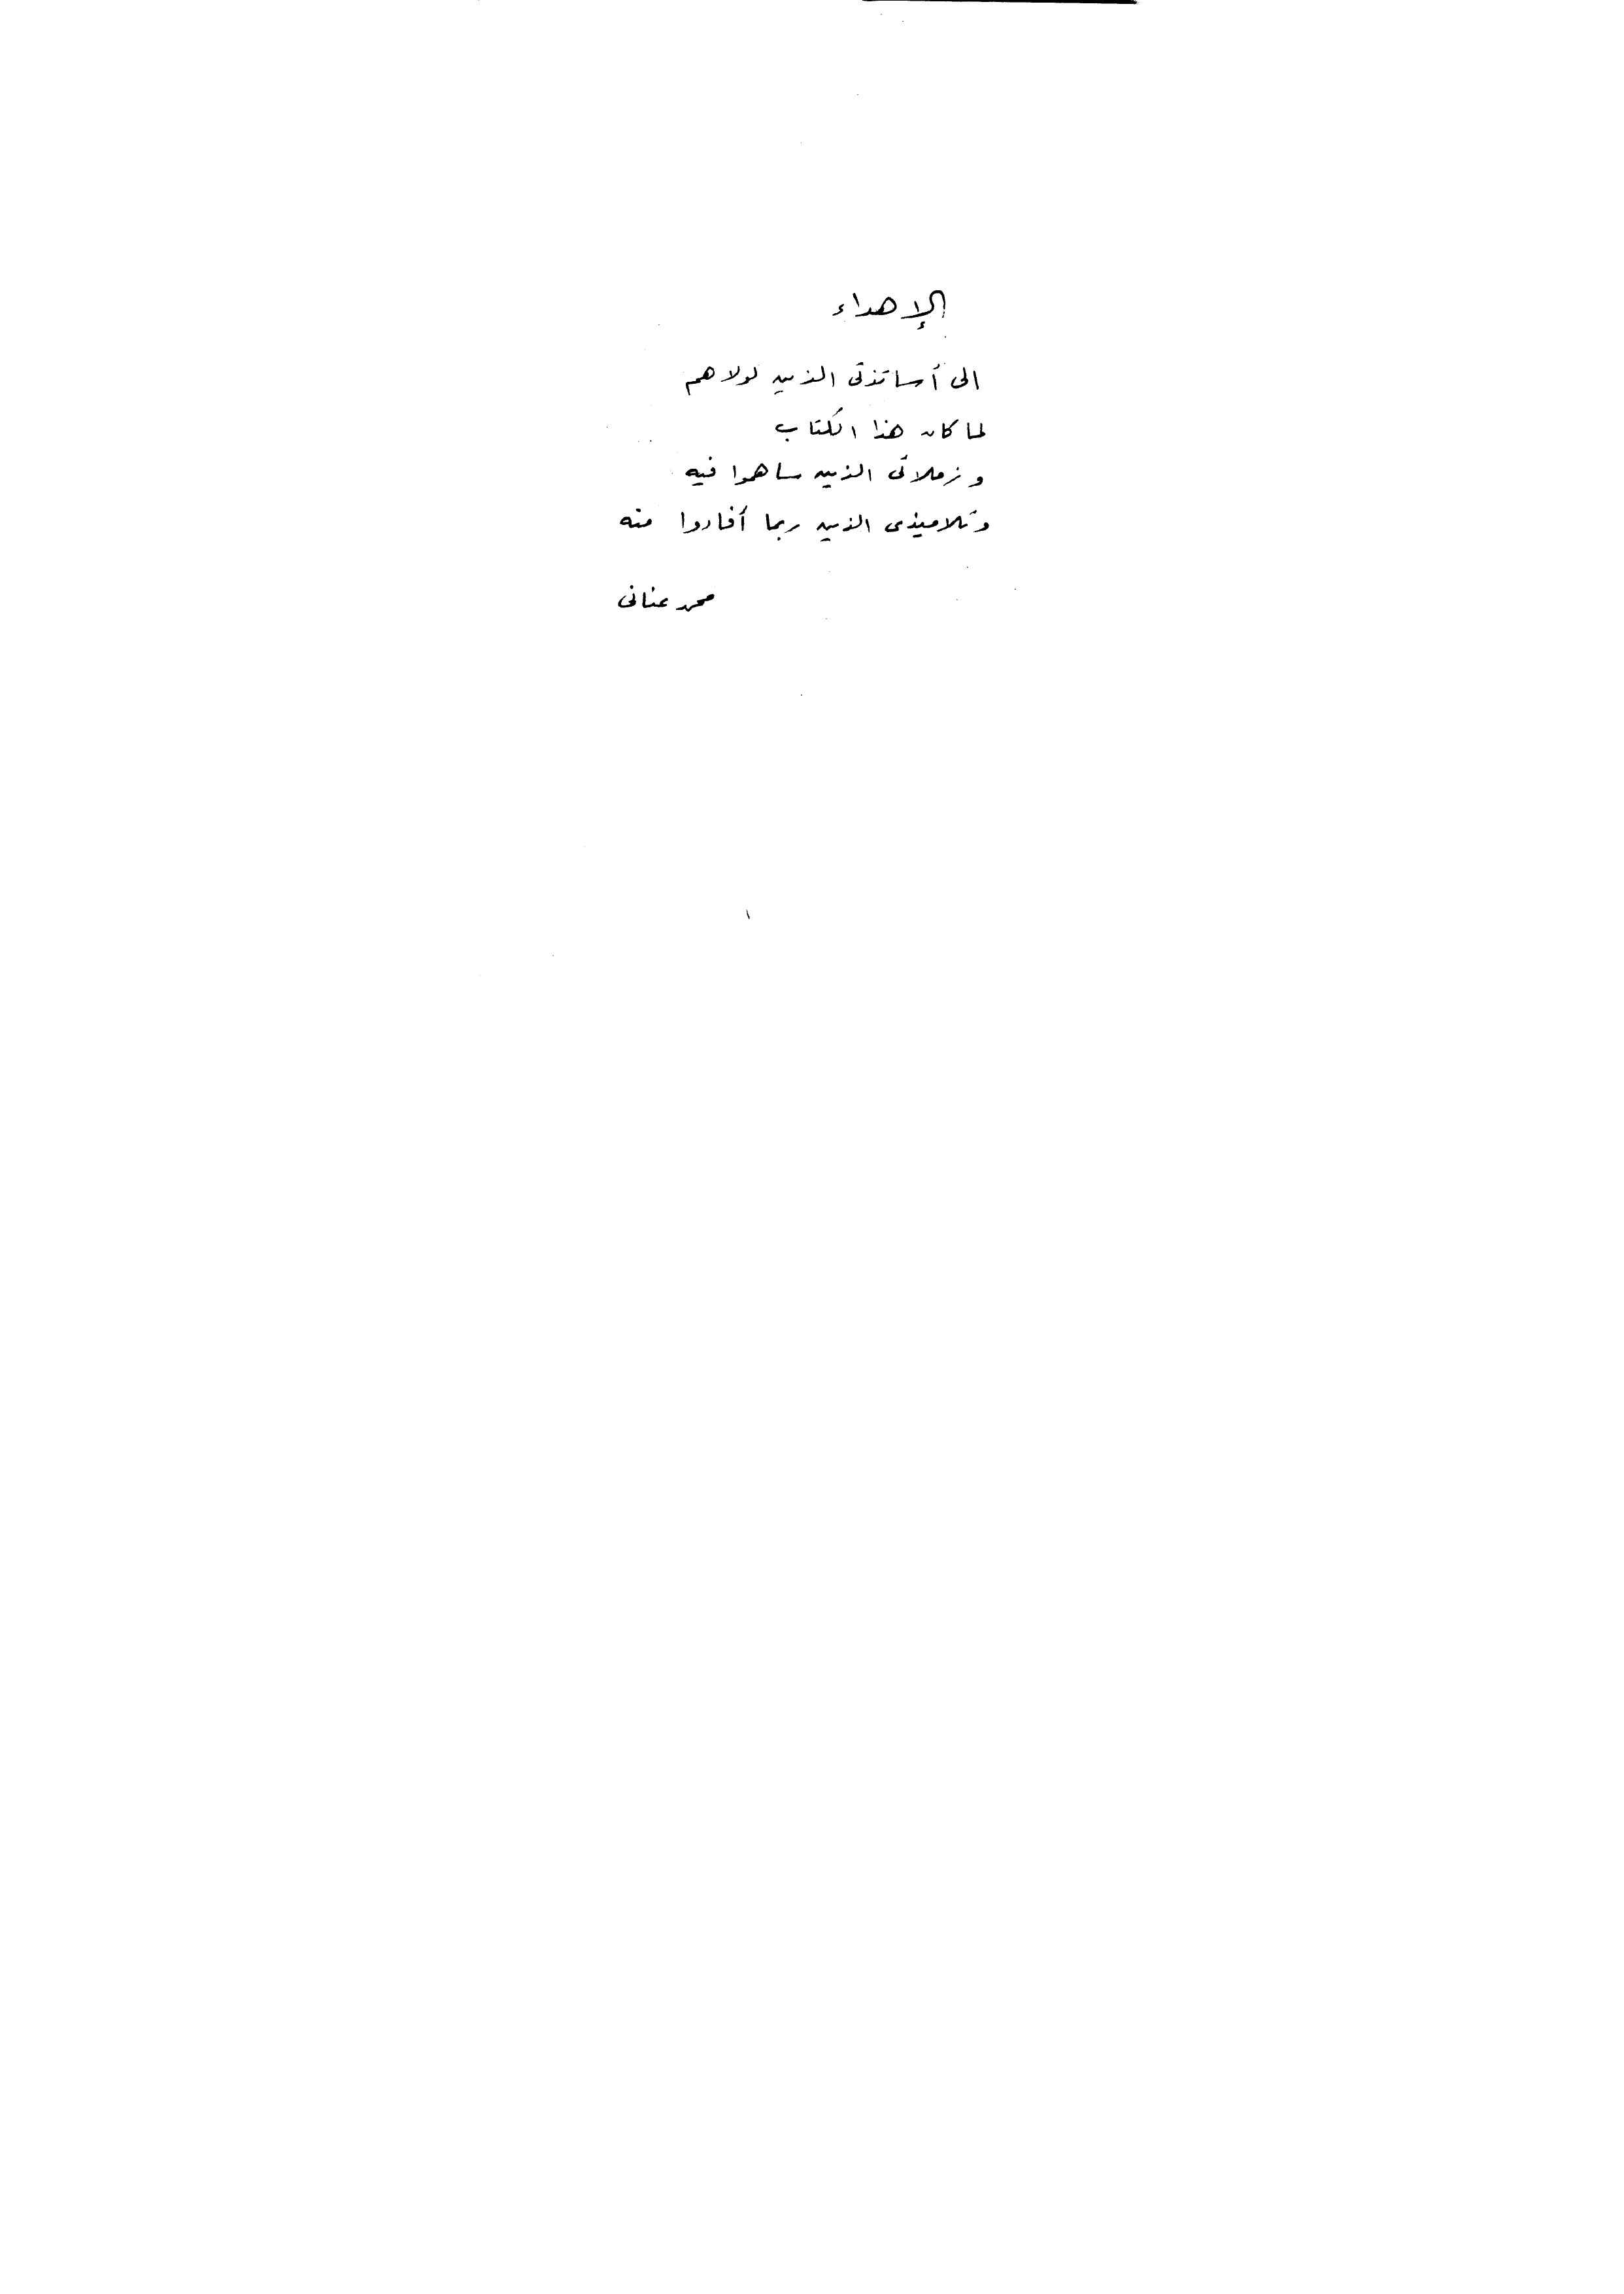 الإهداء
الى أساتذتى الذين لولاهم
لما كان هذا الكتاب
وزملائى الذين ساهموا فيه
وتلاميذى الذين ربما أفادوا منه
محمد عنانى